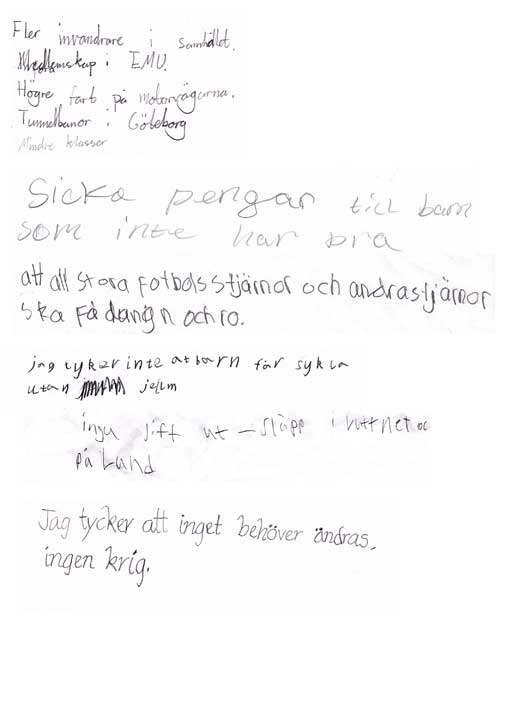 Fler invandrare i samhället.
Medlemskap i EMU.
Högre fart på motorvägarna.
Tunnelbanor i Göteborg
Mindre klasser
Sicka pengar till barn
som inte har bra
att all stora fotbolsstjärnor och andrastjärnor
ska få dangn ochro.
jag tyker inte at barn får sykla
utan jelm
inga jift ut-släpp i vattnet oc
på Land
Jag tycker att inget behöver ändras.
ingen krig.